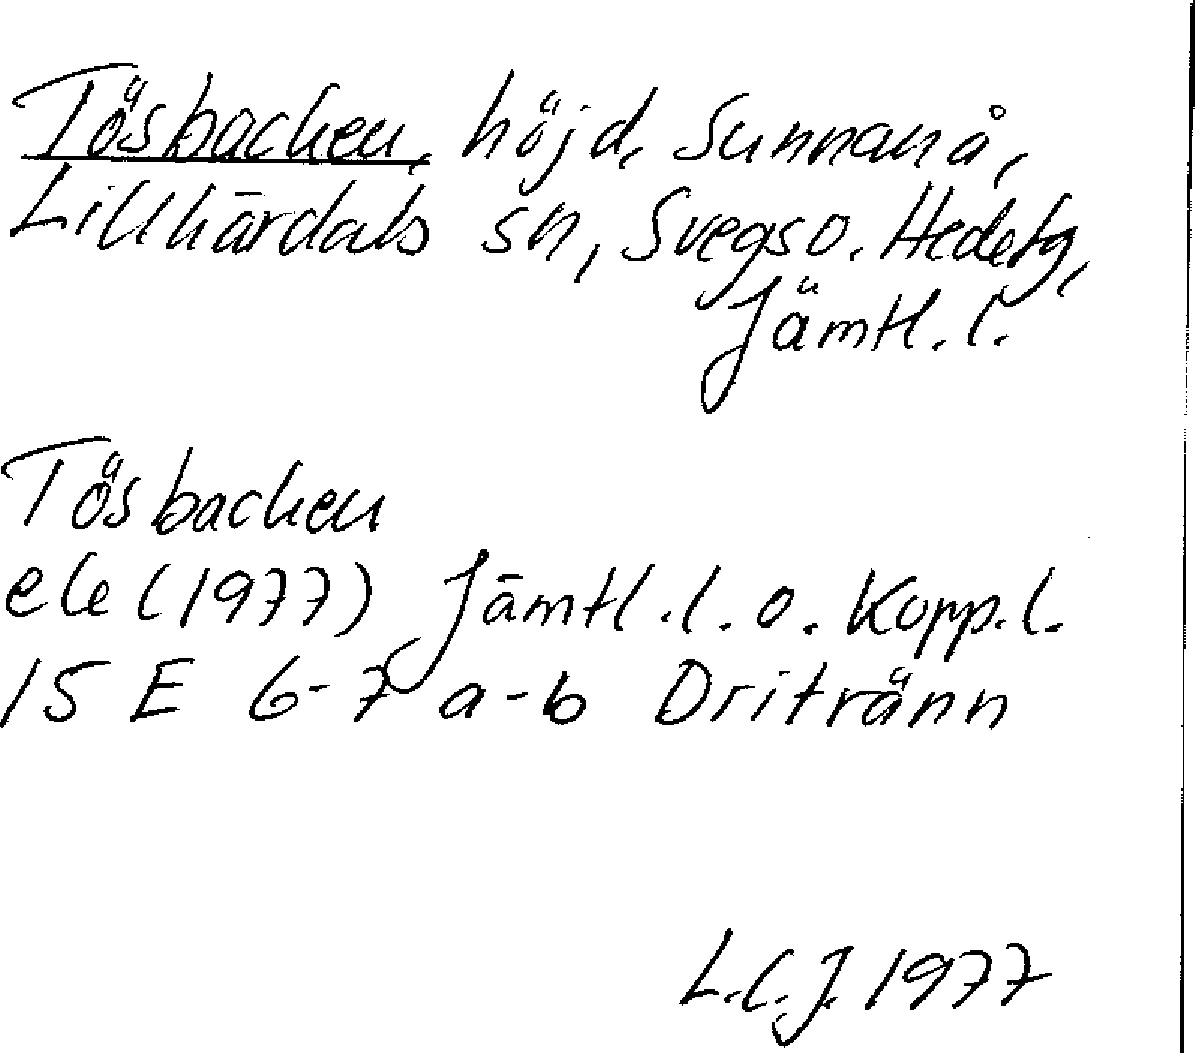 Tösbacken, höjd, Sunnanå,
Lillhärdals sn, Svegs o. Hedetg,
Jämtl. l.
Tösbacken
ek (1977) Jämtl. l. o. Kopp. l.
15 E 6-7 a-b Dritränn
L.C.J. 1977